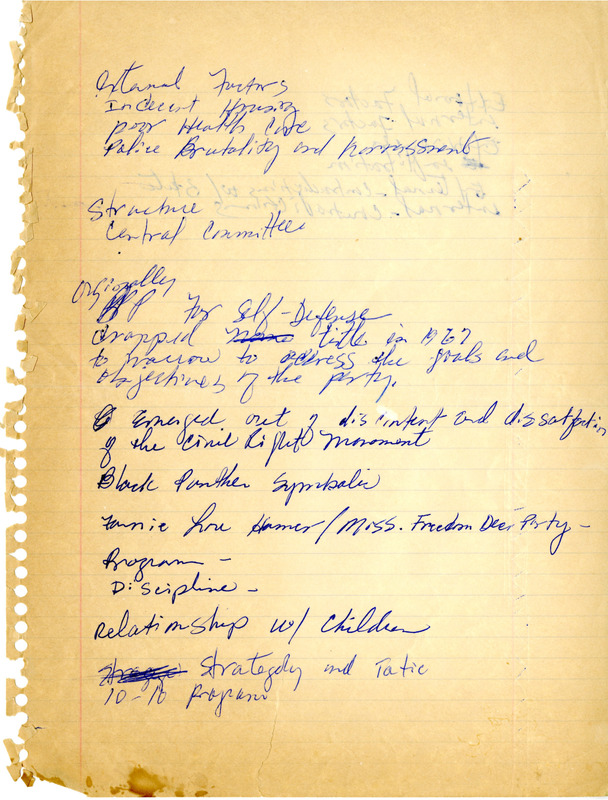 External Factors
Indecent Housing
poor Health Care
Police Brutality and harrassment
Structure
Central Committee
Origionally
BPP For Self-Defense
dropped name title in 1967
to narrow to address the goals and
objectives of the party.
Emerged out of discintent and dissatfaction
of the Civil Rights Movement
Black Panther Symbolic
Fannie Lou Hamer/Miss. Freedom Dem Party -
Program -
Discipline -
Relationship w/ Children
Strategdy and Tatic
10-10 Program